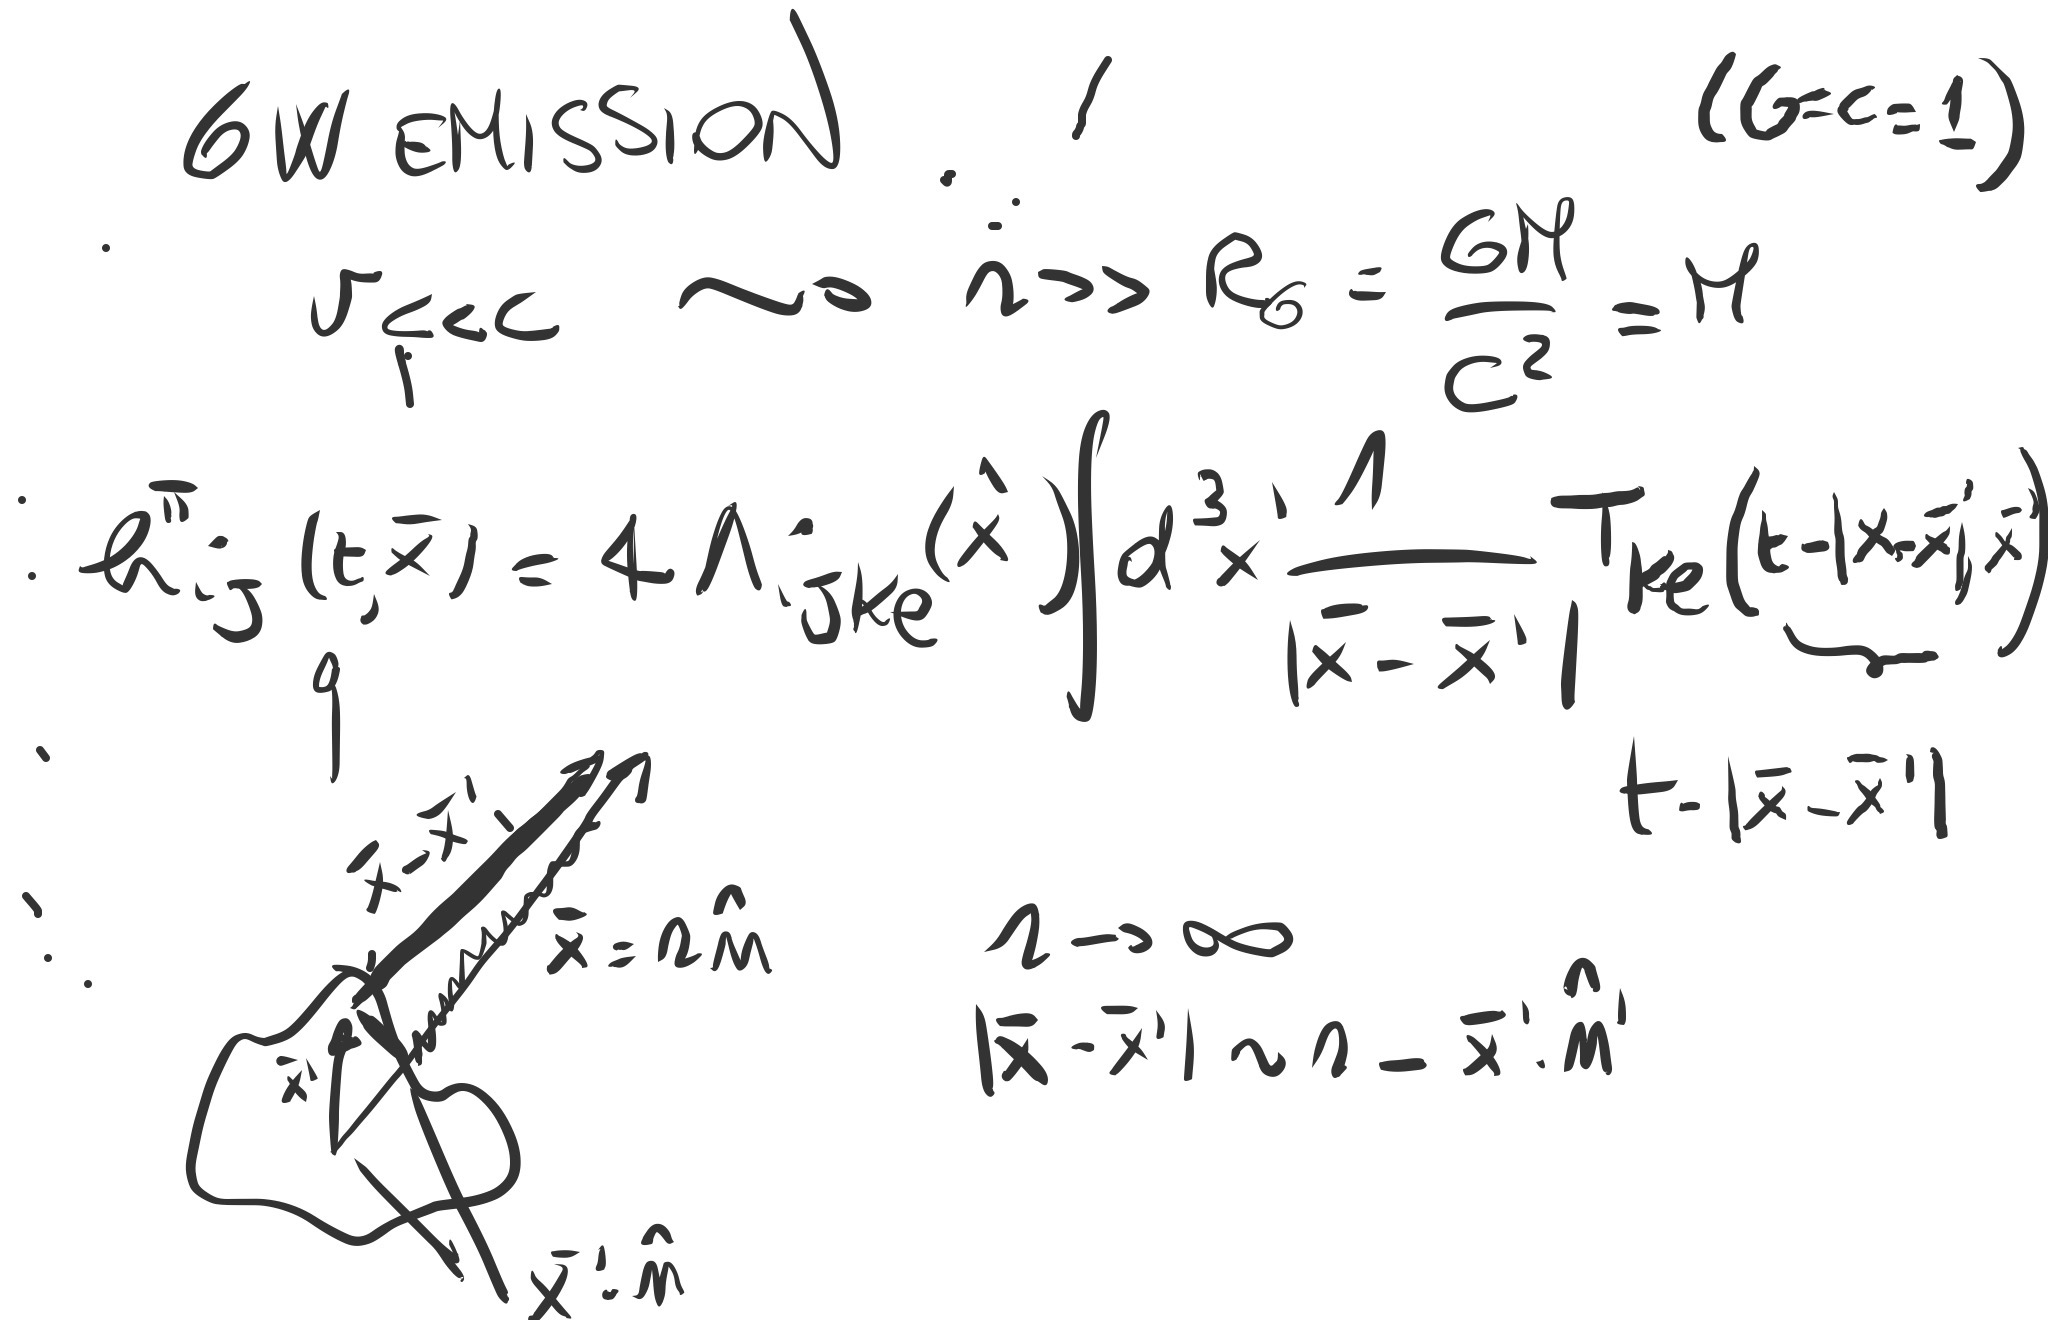 GW EMISSION (G=c=1)
v<<c ~> r>> R_G = GM/c² = M
h^TT_ij (t, x̄) = 4 Λ_ijkl (x̂) ∫ d³x' 1/|x̄ - x̄'| T_kl (t - |x̄ - x̄'|, x̄')
t - |x̄ - x̄'|
x̄ - x̄'
x̄ = r n̂
r → ∞
|x̄ - x̄'| ~ r - x̄' · n̂'
x̄'
x̄' · n̂